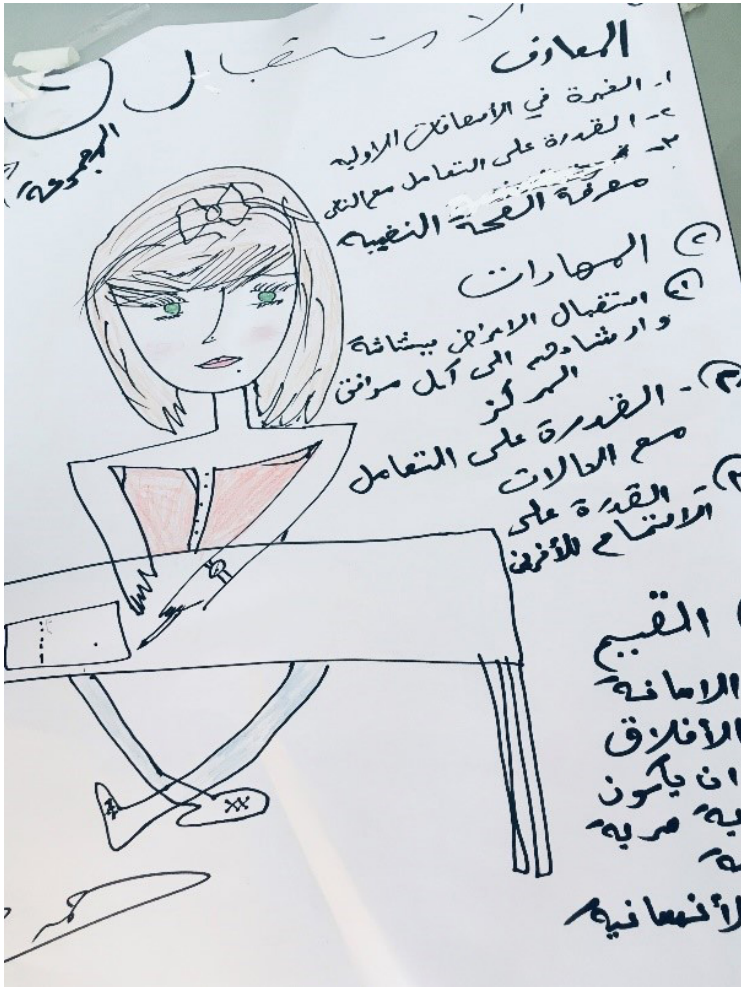 الاستقبال
المجموعة
المعارف
١- الخبرة في الأسعافات الأوليه
٢- القدرة على التعامل مع الناس
٣-
معرفة الصحة النفسيه
٢ المهارات
١ استقبال الامراض ببشاشة
وارشادهم الى أكل مرافق
المركز
٢- القدرة على التعامل
مع الحالات
٣- القدرة على
الاستماع للأخرين
القييم
الامانة
الأخلاق
ان يكون
الأنسانية